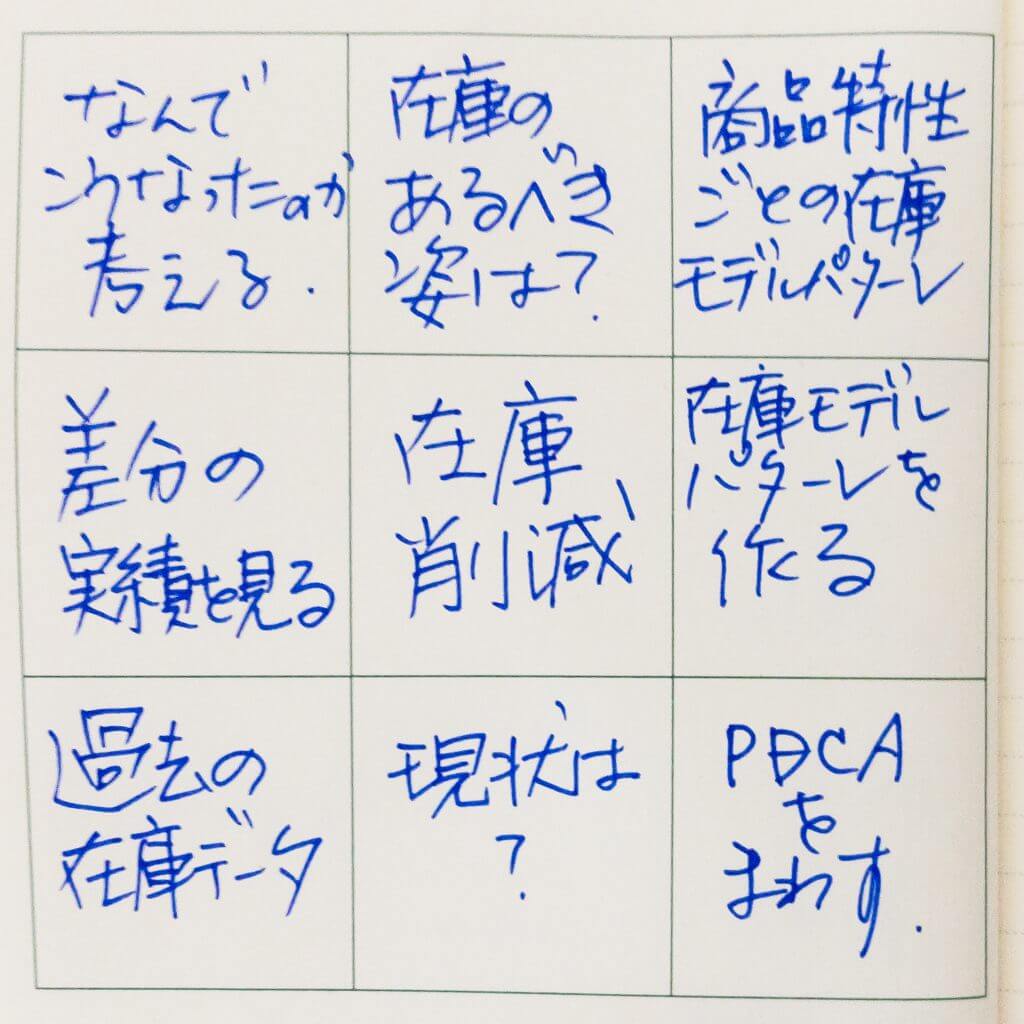 なんで
こうなったのか
考える.
在庫の
あるべき
姿は?
商品特性
ごとの在庫
モデルパターン
差分の
実績を見る
在庫
削減
在庫モデル
パターンを
作る
過去の
在庫データ
現状は
?
PDCA
を
まわす.